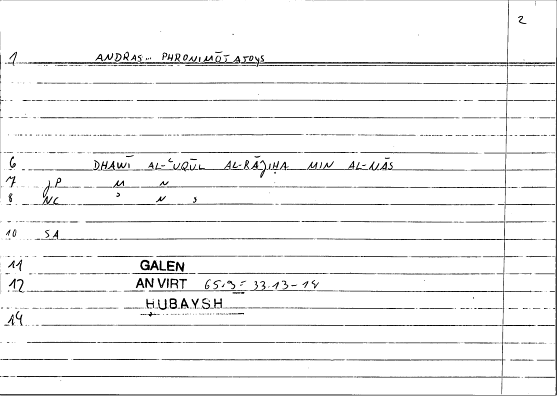 2
1 ANDRAS... PHRONIMŌTATOYS
6 DHAWĪ AL-ʿUQŪL AL-RĀJIḤA MIN AL-NĀS
7 JP M N
8 NC , N ,
10 SA
11 GALEN
12 AN VIRT 65.9 = 33.13-14
ḤUBAYSH
14